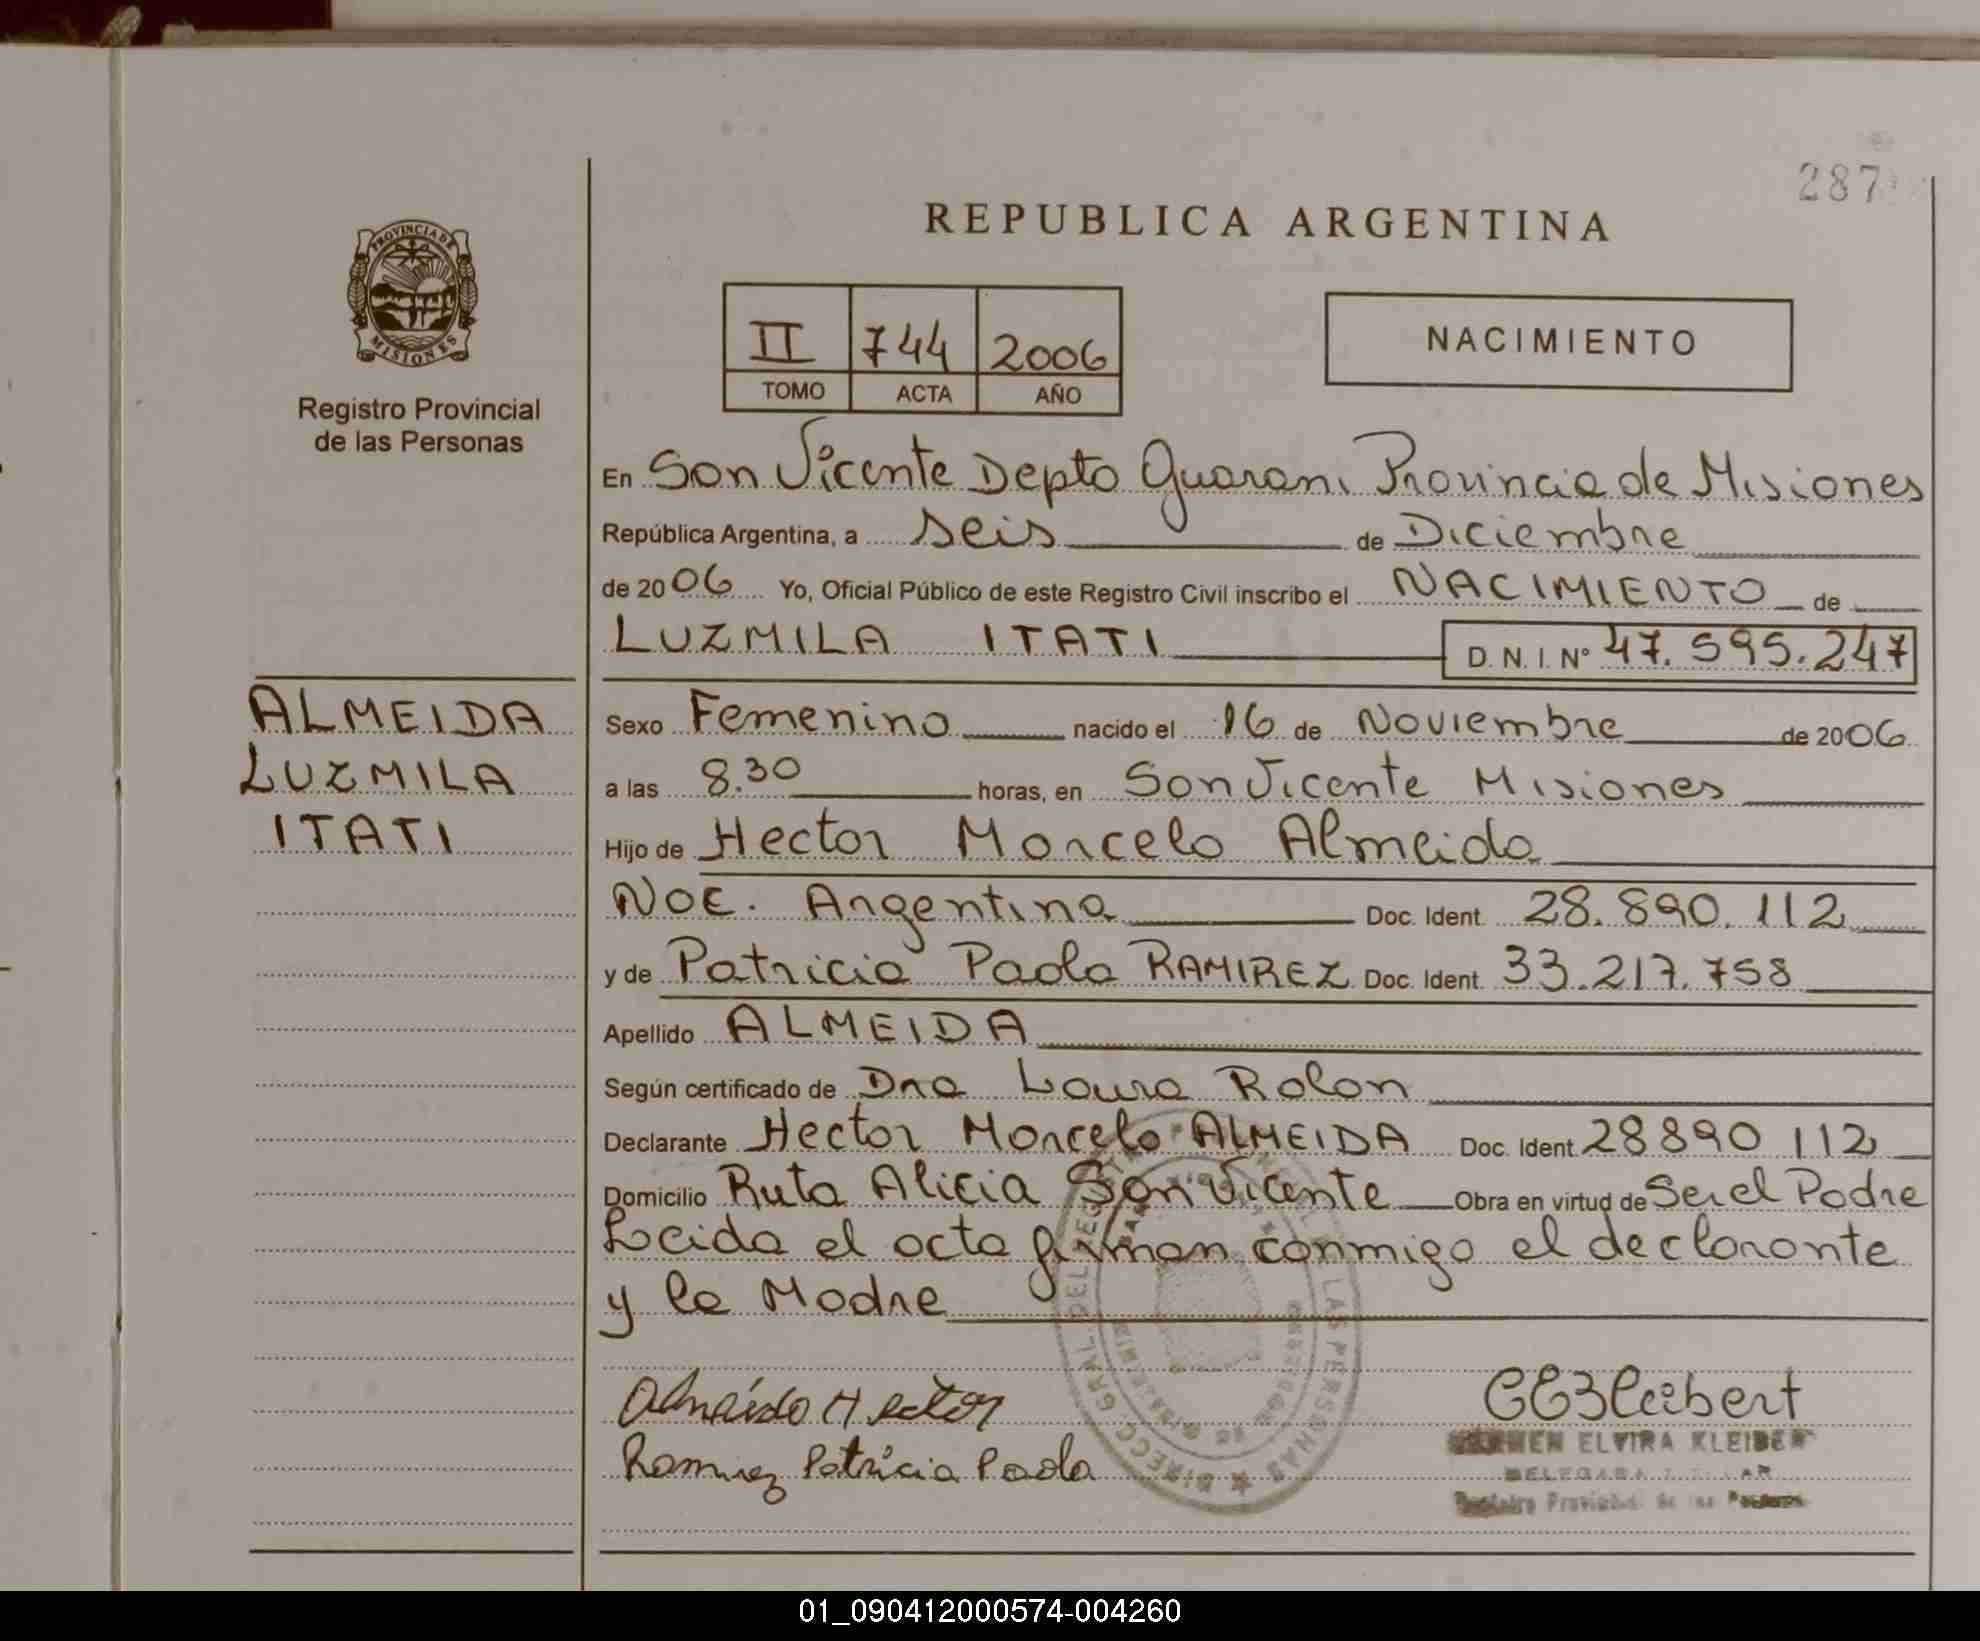 287
REPUBLICA ARGENTINA
PROVINCIA DE
MISIONES
Registro Provincial
de las Personas
II 744 2006
TOMO ACTA AÑO
NACIMIENTO
En San Vicente Depto Guarani Provincia de Misiones
República Argentina, a seis de Diciembre
de 2006 Yo, Oficial Público de este Registro Civil inscribo el NACIMIENTO de
LUZMILA ITATI D. N. I. Nº 47.595.247
ALMEIDA
LUZMILA
ITATI
Sexo Femenino nacido el 16 de Noviembre de 2006
a las 8.30 horas, en San Vicente Misiones
Hijo de Hector Marcelo Almeida
Nac. Argentina Doc. Ident. 28.890.112
y de Patricia Paola RAMIREZ Doc. Ident. 33.217.758
Apellido ALMEIDA
Según certificado de Dra Laura Rolon
Declarante Hector Marcelo ALMEIDA Doc. Ident. 28890112
Domicilio Ruta Alicia San Vicente Obra en virtud de Ser el Padre
Leida el acta firman conmigo el declarante
y la Madre
Almeida Hector
Ramirez Patricia Paola
ELVIRA KLEIBER
Registro Provincial de las Personas
DIRECC GRAL. DEL LAS PERSONAS
01_090412000574-004260